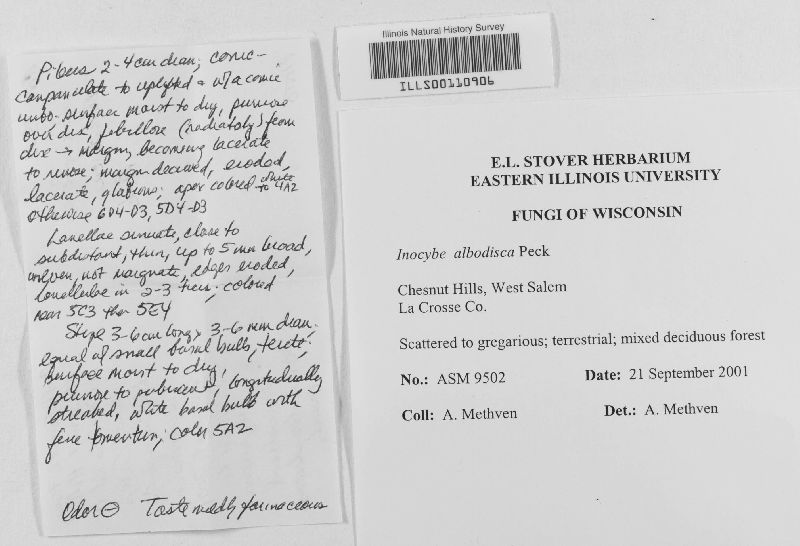 Pileus 2-4 cm diam; conic-
campanulate to uplifted & w/a conic
umbo. surface moist to dry, pruinose
over disc, fibrillose (radiately) from
disc → margin, becoming lacerate
to rimose; margin decurved, eroded,
lacerate, glabrous; apex colored white to 4A2
otherwise 6D4-D3, 5D4-D3
Lamellae sinuate, close to
subdistant, thin, up to 5 mm broad,
uneven, not marginate, edges eroded,
lamellulae in 2-3 tiers; colored
near 5C3 then 5E4
Stipe 3-6 cm long, 3-6 mm diam.
equal w/ small basal bulb, terete;
surface moist to dry,
pruinose to pubescent, longitudinally
streaked, white basal bulb with
fine tomentum; color 5A2
Odor ⊖ Taste mildly farinaceous
Illinois Natural History Survey
ILLS00110906
E.L. STOVER HERBARIUM
EASTERN ILLINOIS UNIVERSITY
FUNGI OF WISCONSIN
Inocybe albodisca Peck
Chesnut Hills, West Salem
La Crosse Co.
Scattered to gregarious; terrestrial; mixed deciduous forest
No.: ASM 9502 Date: 21 September 2001
Coll: A. Methven Det.: A. Methven